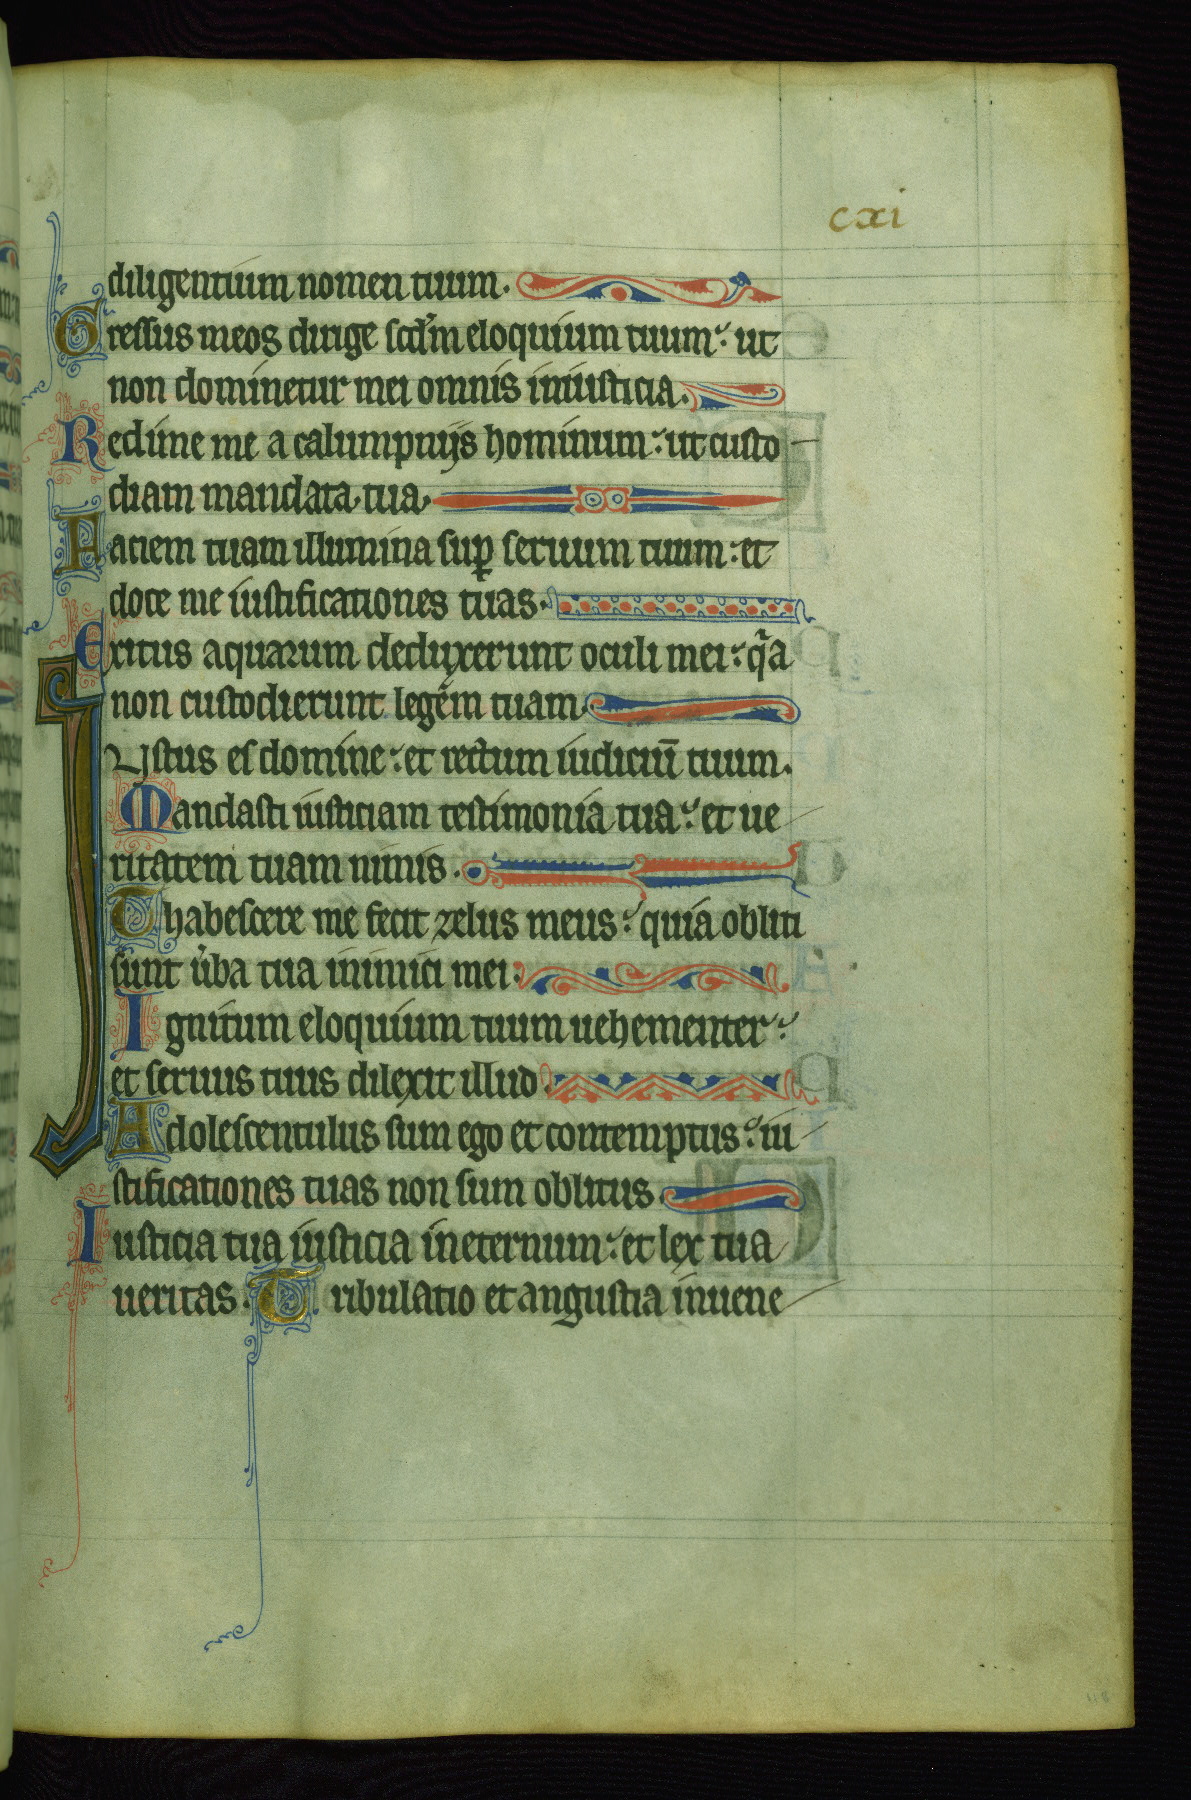 cxi
diligentium nomen tuum.
Gressus meos dirige scd'm eloquium tuum: ut
non dominetur mei omnis iniusticia.
Redime me a calumpnijs hominum: ut custo
diam mandata tua.
Faciem tuam illumina sup seruum tuum: et
doce me iustificationes tuas.
Exitus aquarum deduxerunt oculi mei: qa
non custodierunt legem tuam.
Iustus es domine: et rectum iudiciū tuum.
Mandasti iusticiam testimonia tua: et ue
ritatem tuam nimis.
Thabescere me fecit zelus meus: quia obliti
sunt u'ba tua inimici mei.
Ignitum eloquium tuum uehementer:
et seruus tuus dilexit illud.
Adolescentulus sum ego et contemptus: iu
stificationes tuas non sum oblitus.
Iusticia tua iusticia ineternum: et lex tua
ueritas. Tribulatio et angustia inuene